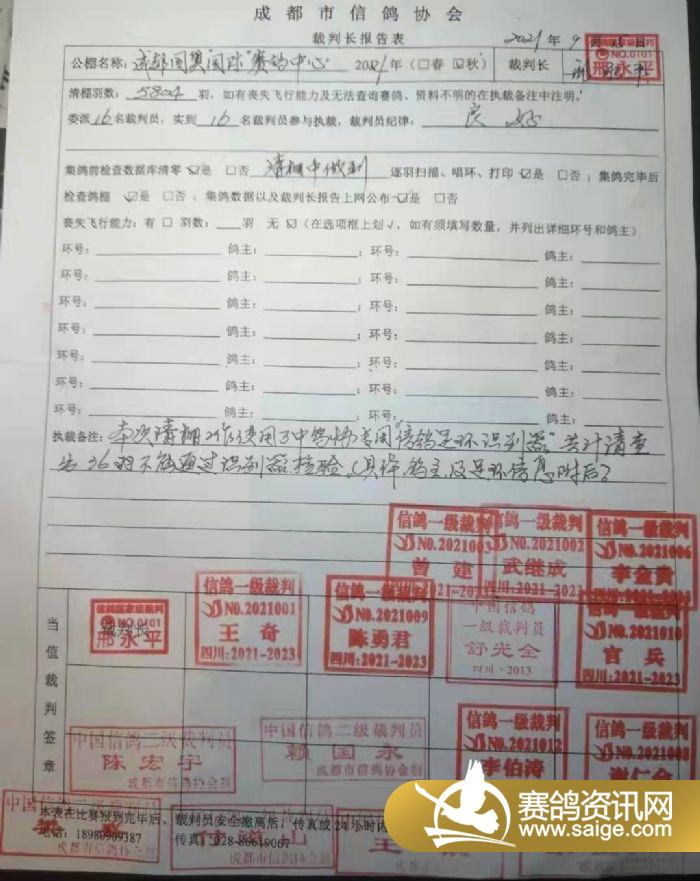 成都市信鸽协会
裁判长报告表 2021年9月
公棚名称：成都国奥"国际"赛鸽中心 2021年（□春 ☑秋） 裁判长
信鸽国家级裁判
NO.0101
邢永平
清棚羽数：5804 羽，如有丧失飞行能力及无法查询赛鸽、资料不明的在执裁备注中注明。
委派16名裁判员，实到16名裁判员参与执裁，裁判员纪律：良好
集鸽前检查数据库清零 ☑是 □否 清棚中做到 逐羽扫描、唱环、打印 ☑是 □否；集鸽完毕后
检查鸽棚 ☑是 □否；集鸽数据以及裁判长报告上网公布 ☑是 □否
丧失飞行能力：有 □ 羽数：___羽 无 ☑（在选项框上划√，如有须填写数量，并列出详细环号和鸽主）
环号： 鸽主： ；环号： 鸽主：
环号： 鸽主： ；环号： 鸽主：
环号： 鸽主： ；环号： 鸽主：
环号： 鸽主： ；环号： 鸽主：
环号： 鸽主： ；环号： 鸽主：
环号： 鸽主： ；环号： 鸽主：
环号： 鸽主： ；环号： 鸽主：
执裁备注：本次清棚工作使用了中鸽协专用"信鸽足环识别器"共计清查
出26羽不能通过识别器检验。（具体鸽主及足环信息附后）
信鸽一级裁判
NO.2021003
曾建
2021-202
信鸽一级裁判
NO.2021002
武继成
2021-202
信鸽一级裁判
NO.2021006
李金贵
当值裁判签章
裁判长
信鸽国家级裁判
NO.0101
邢永平
信鸽一级裁判
NO.2021001
王奇
四川：2021-2023
信鸽一级裁判
NO.2021009
陈勇君
四川：2021-2023
中国信鸽
一级裁判员
舒光全
四川·2013
NO.2021010
官兵
四川：2021-2023
中国信鸽二级裁判员
陈宏宇
成都市信鸽协会制
中国信鸽二级裁判员
赖国永
成都市信鸽协会制
信鸽一级裁判
NO.2021012
李伯涛
信鸽一级裁判
NO.2021008
谢仁全
本表在比赛报到完毕后、裁判员安全撤离后，传真或24小时内
电话：18980909387 传真：028-86619067
成都市信鸽协会制
赛鸽资讯网
www.saige.com